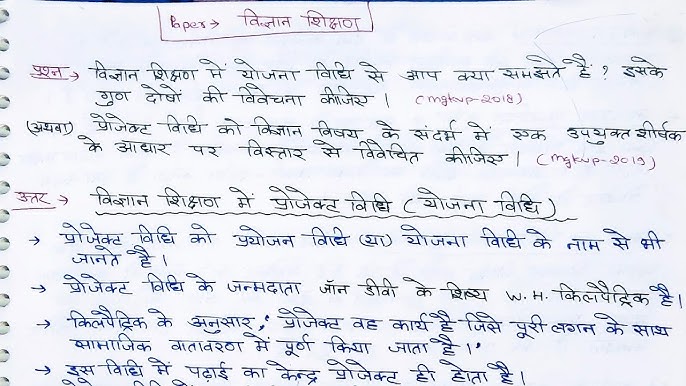 Paper → विज्ञान शिक्षण
प्रश्न → विज्ञान शिक्षण में योजना विधि से आप क्या समझते हैं? इसके
गुण दोषों की विवेचना कीजिए। (mgkvp-2018)
(अथवा) प्रोजेक्ट विधि को विज्ञान विषय के संदर्भ में एक उपयुक्त शीर्षक
के आधार पर विस्तार से विवेचित कीजिए। (mgkvp-2019)
उत्तर → विज्ञान शिक्षण में प्रोजेक्ट विधि (योजना विधि)
→ प्रोजेक्ट विधि को प्रयोजन विधि (या) योजना विधि के नाम से भी
जानते है।
→ प्रोजेक्ट विधि के जन्मदाता जॉन डीवी के शिष्य W.H. किलपैट्रिक है।
→ किलपैट्रिक के अनुसार, 'प्रोजेक्ट वह कार्य है जिसे पूरी लगन के साथ
सामाजिक वातावरण में पूर्ण किया जाता है।'
→ इस विधि में पढ़ाई का केन्द्र प्रोजेक्ट ही होता है।